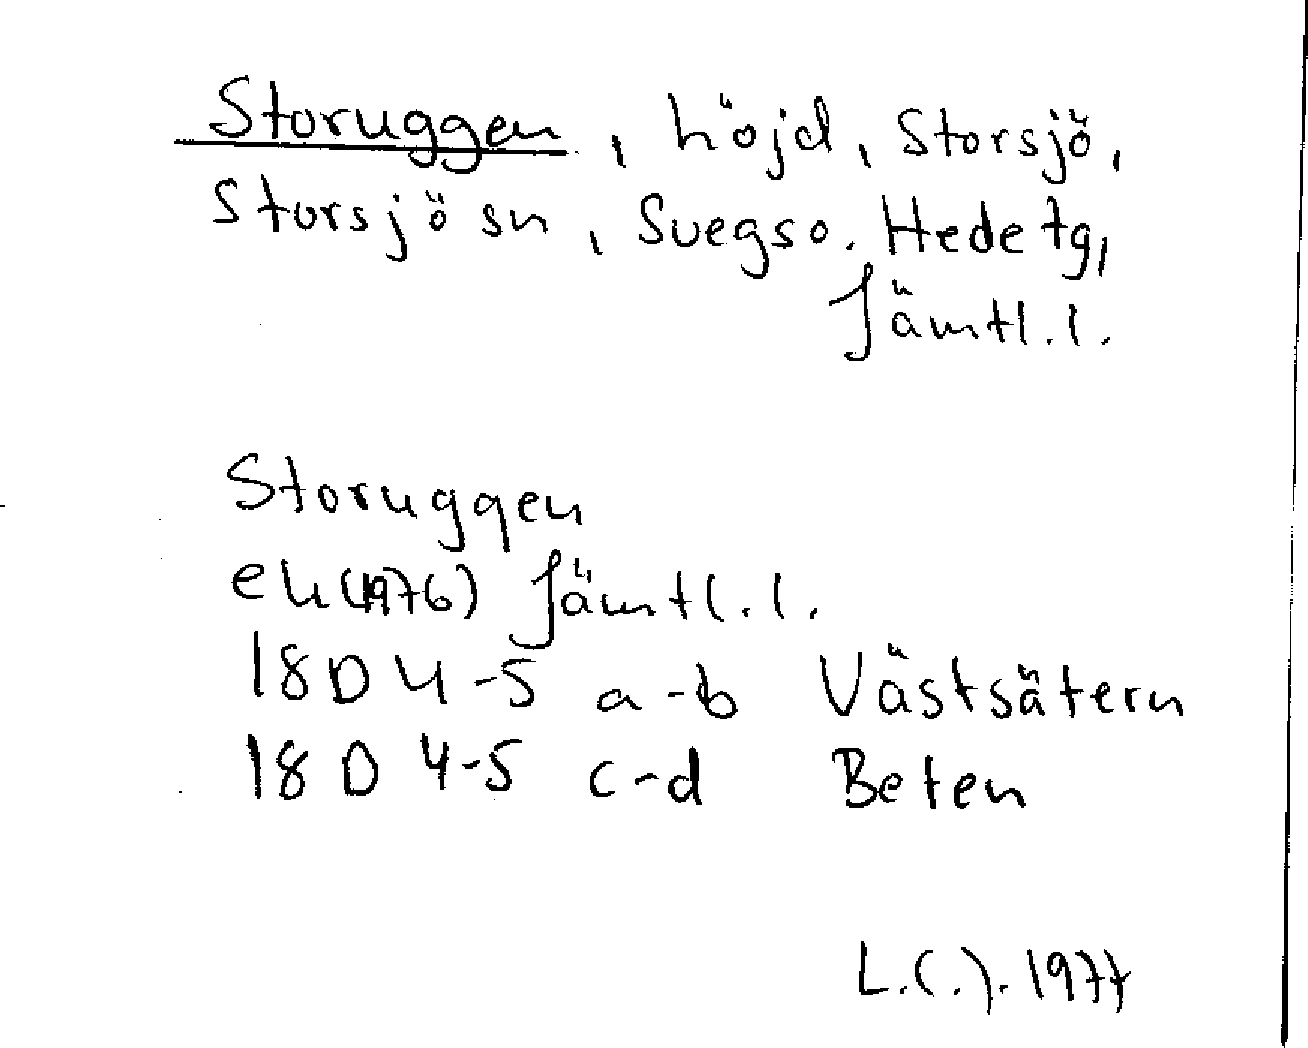 Storuggen, höjd, Storsjö,
Storsjö sn, Svegs o. Hede tg,
Jämtl. l.
Storuggen
ek (1976) Jämtl. l.
18 D 4-5 a-b Västsätern
18 D 4-5 c-d Beten
L.C.J. 1977